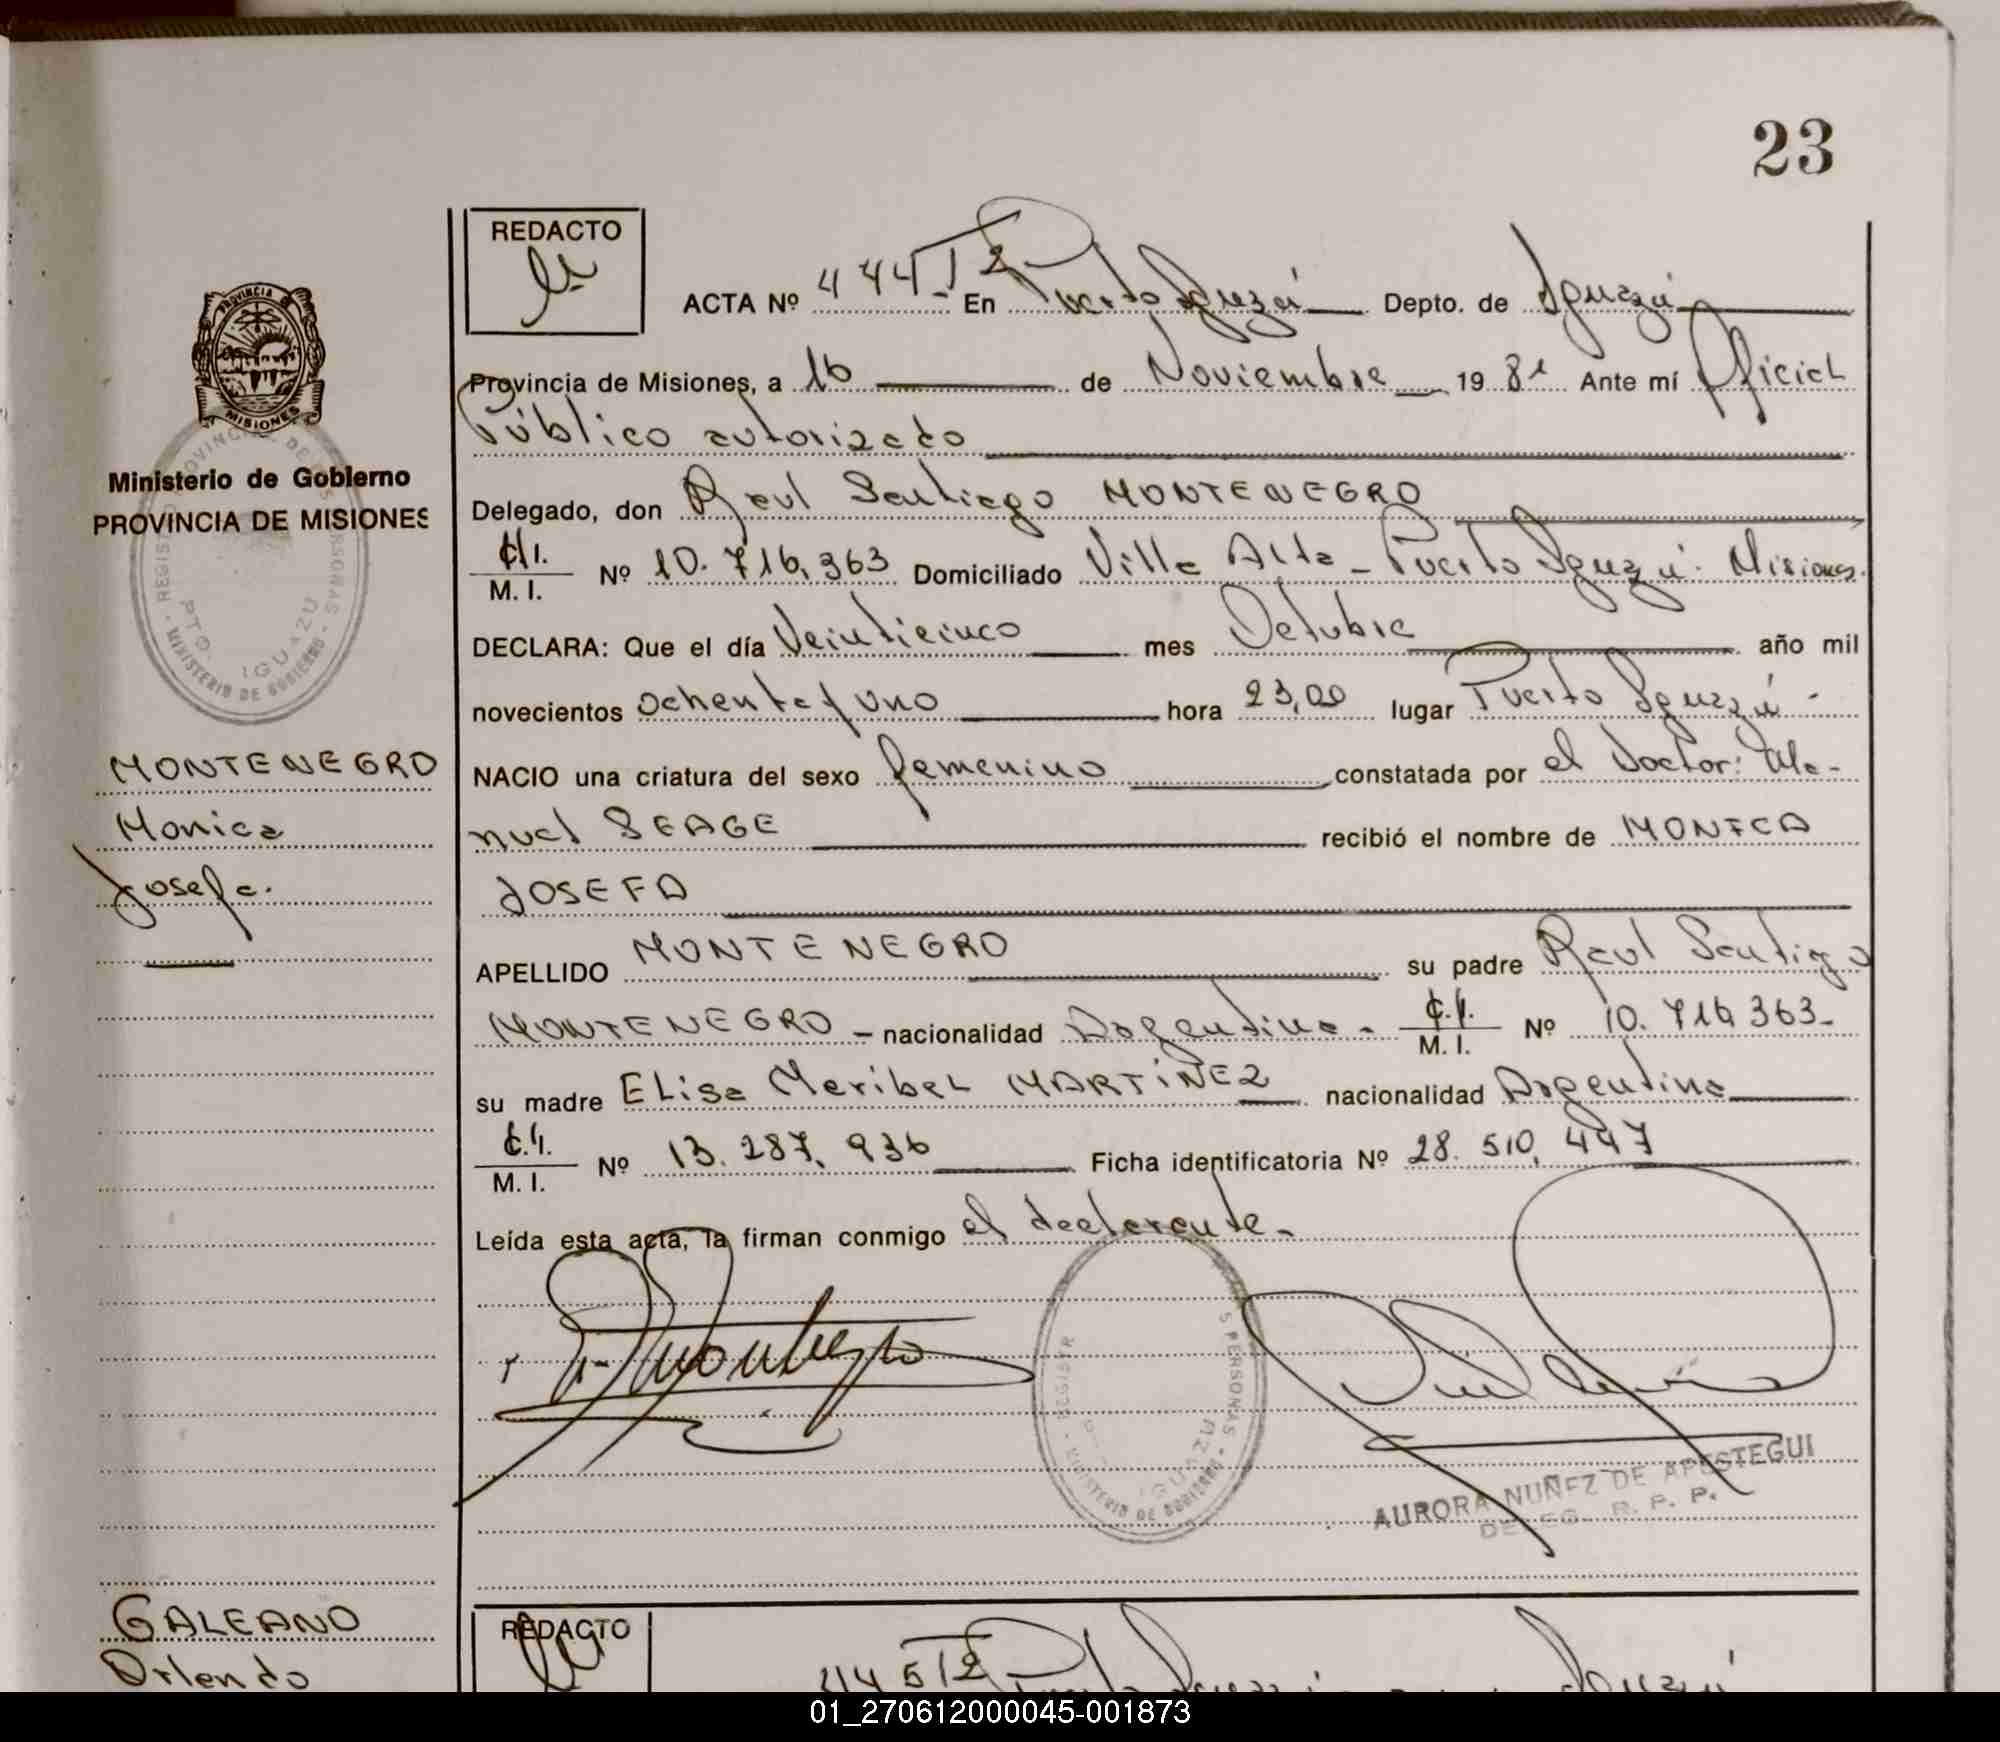 23
REDACTO
ACTA Nº 444 T 2 En Puerto Iguazú Depto. de Iguazú
Provincia de Misiones, a 16 de Noviembre 1981 Ante mí Oficial
Público autorizado
Delegado, don Raul Santiago MONTENEGRO
C.I.
M. I. Nº 10.716.363 Domiciliado Villa Alta - Puerto Iguazú - Misiones.
DECLARA: Que el día Veinticinco mes Octubre año mil
novecientos ochenta y uno hora 23,00 lugar Puerto Iguazú -
NACIO una criatura del sexo femenino constatada por el Doctor: Ma-
nuel SEAGE recibió el nombre de MONICA
JOSEFA
APELLIDO MONTENEGRO su padre Raul Santiago
MONTENEGRO - nacionalidad Argentina - C.I.
M. I. Nº 10.716.363-
su madre Elisa Maribel MARTINEZ nacionalidad Argentina
C.I.
M. I. Nº 13.287.936 Ficha identificatoria Nº 28.510.447
Leída esta acta, la firman conmigo el declarante-
AURORA NUÑEZ DE APESTEGUI
DELEG. R. P. P.
PROVINCIA
MISIONES
Ministerio de Gobierno
PROVINCIA DE MISIONES
PTO. IGUAZU
MINISTERIO DE GOBIERNO
MONTENEGRO
Monica
Josefa.
GALEANO
Orlando
REDACTO
445 T2 Puerto Iguazú Iguazú
01_270612000045-001873